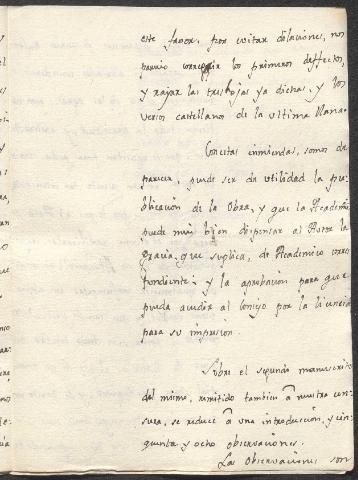 este favor, por evitar dilaciones, nos
pareció corregir los primeros deffectos,
y rajar las tres hojas ya dichas, y los
versos castellanos de la ultima llana.
Con estas inmiendas, somos de
parecer, puede ser de utilidad la pu-
blicación de la Obra, y que la Academia
puede mui bien dispensar al Autor la
gracia, que suplica, de Academico corres-
pondiente; y la aprobación para que
pueda acudir al Consejo por la licencia
para su impresion.
Sobre el segundo manuscrito
del mismo, remitido tambien â nuestra cen-
sura, se reduce â una introducción, y cin-
quenta y ocho observaciones.
Las Observaciones son